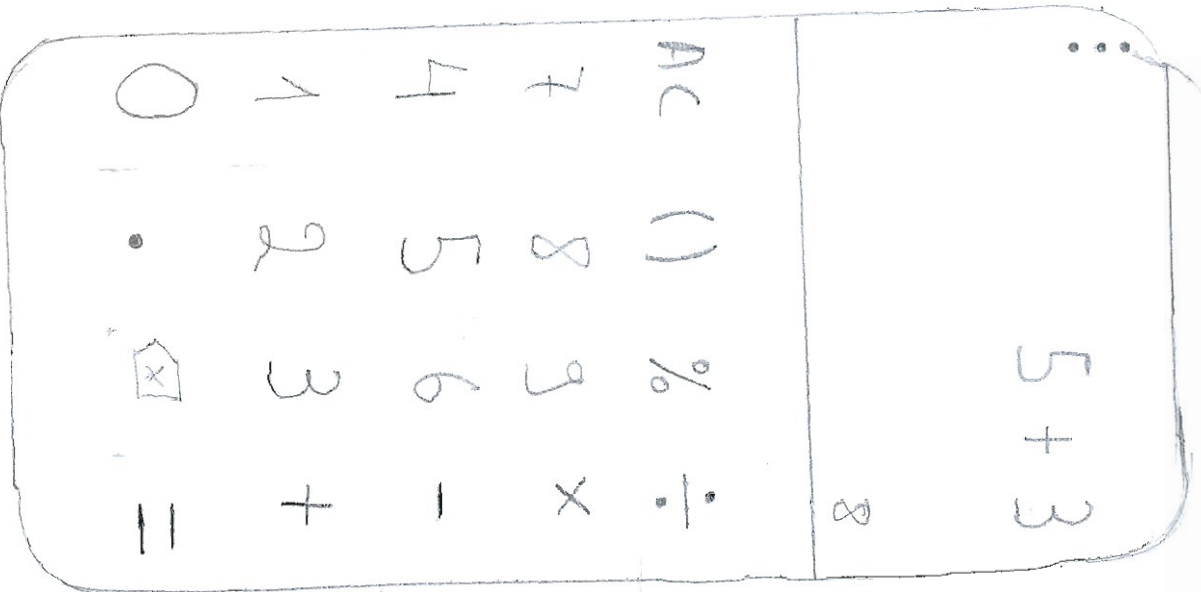 ...
5 + 3
8
AC () % ÷
7 8 9 ×
4 5 6 -
1 2 3 +
0 . x =